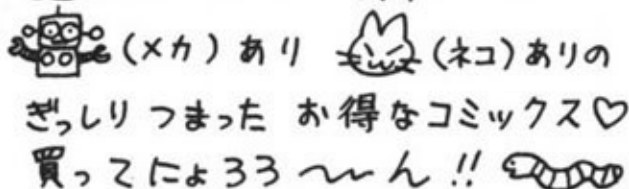 (メカ)あり (ネコ)ありの
ぎっしりつまった お得なコミックス♡
買ってにょろろ〜〜ん!!